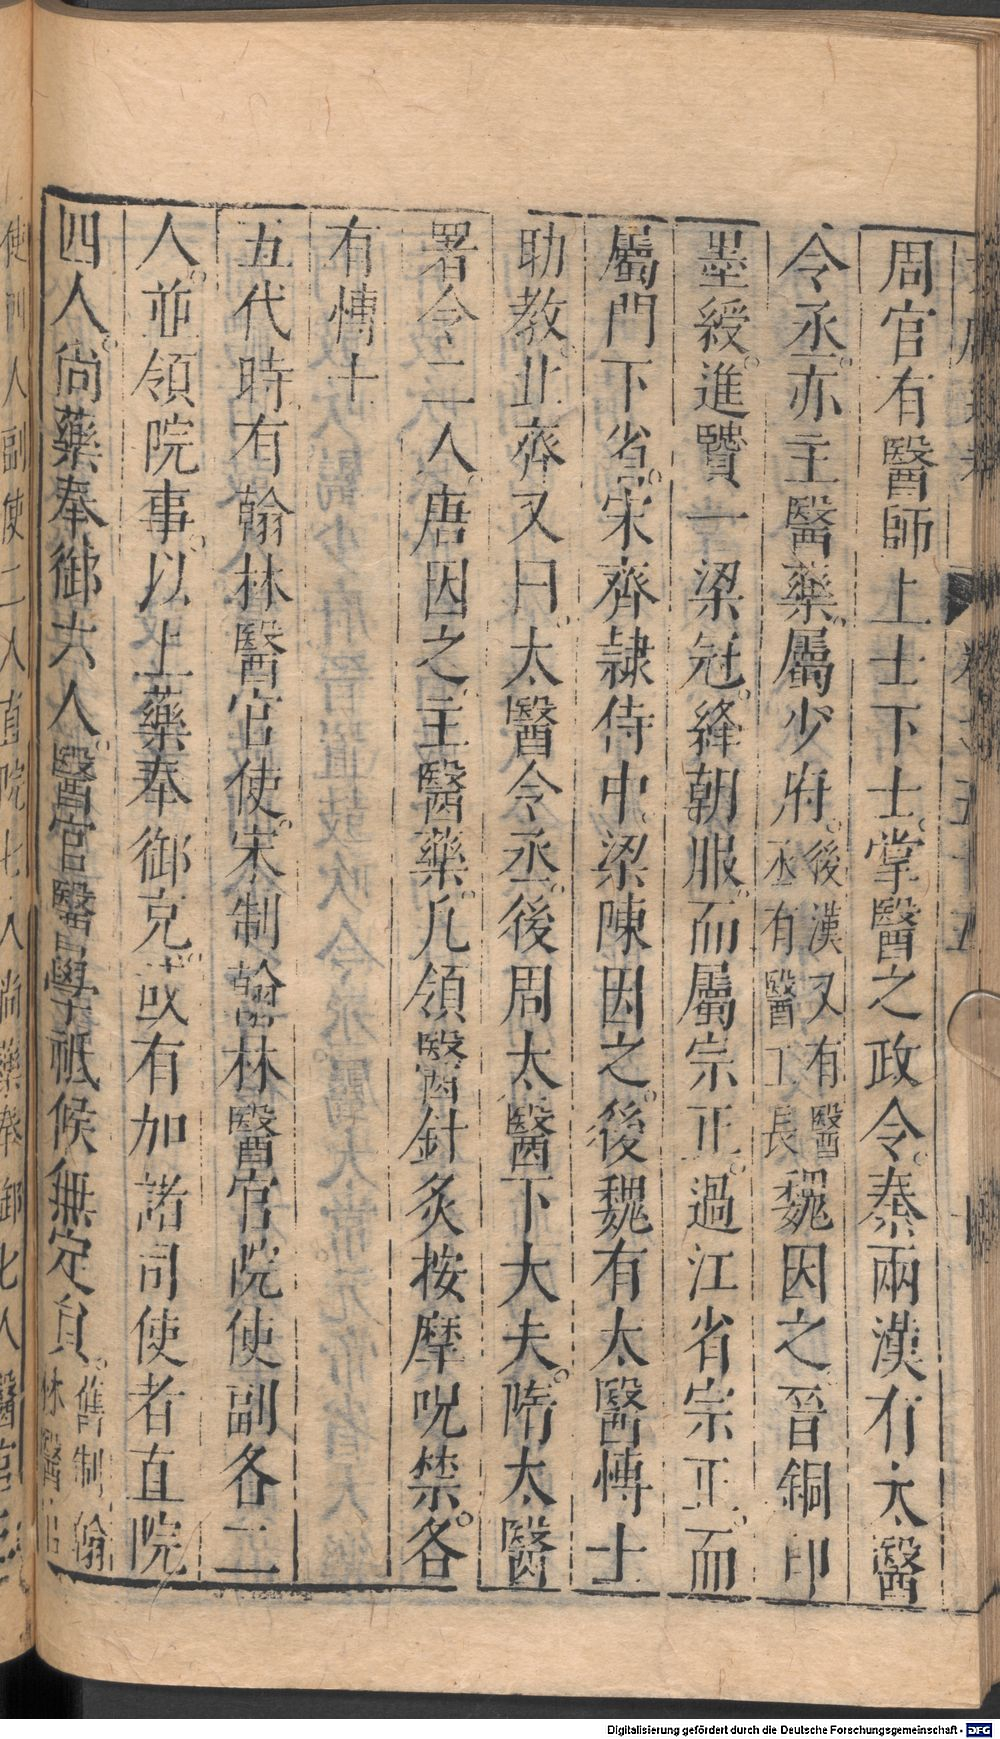 周官有醫師上士下士掌醫之政令。秦兩漢有太醫
令丞。亦主醫藥。屬少府。後漢又有醫丞有醫工長魏因之晉銅印
墨綬。進賢一梁冠。絳朝服。而屬宗正。過江省宗正。而
屬門下省。宋齊隷侍中。梁陳因之。後魏有太醫博士
助教。北齊又曰。太醫令丞。後周太醫下大夫。隋太醫
署令二人。唐因之。主醫藥。凡領醫針灸按摩呪禁。各
有博士
五代時有翰林醫官使。宋制翰林醫官院使副各二
人。並領院事。以上藥奉御充。或有加諸司使者直院
四人。尚藥奉御六人。醫官醫學祗候無定員。舊制翰林醫官
使副人副使二人直院七人尚藥奉御七人醫官
Digitalisierung gefördert durch die Deutsche Forschungsgemeinschaft - DFG